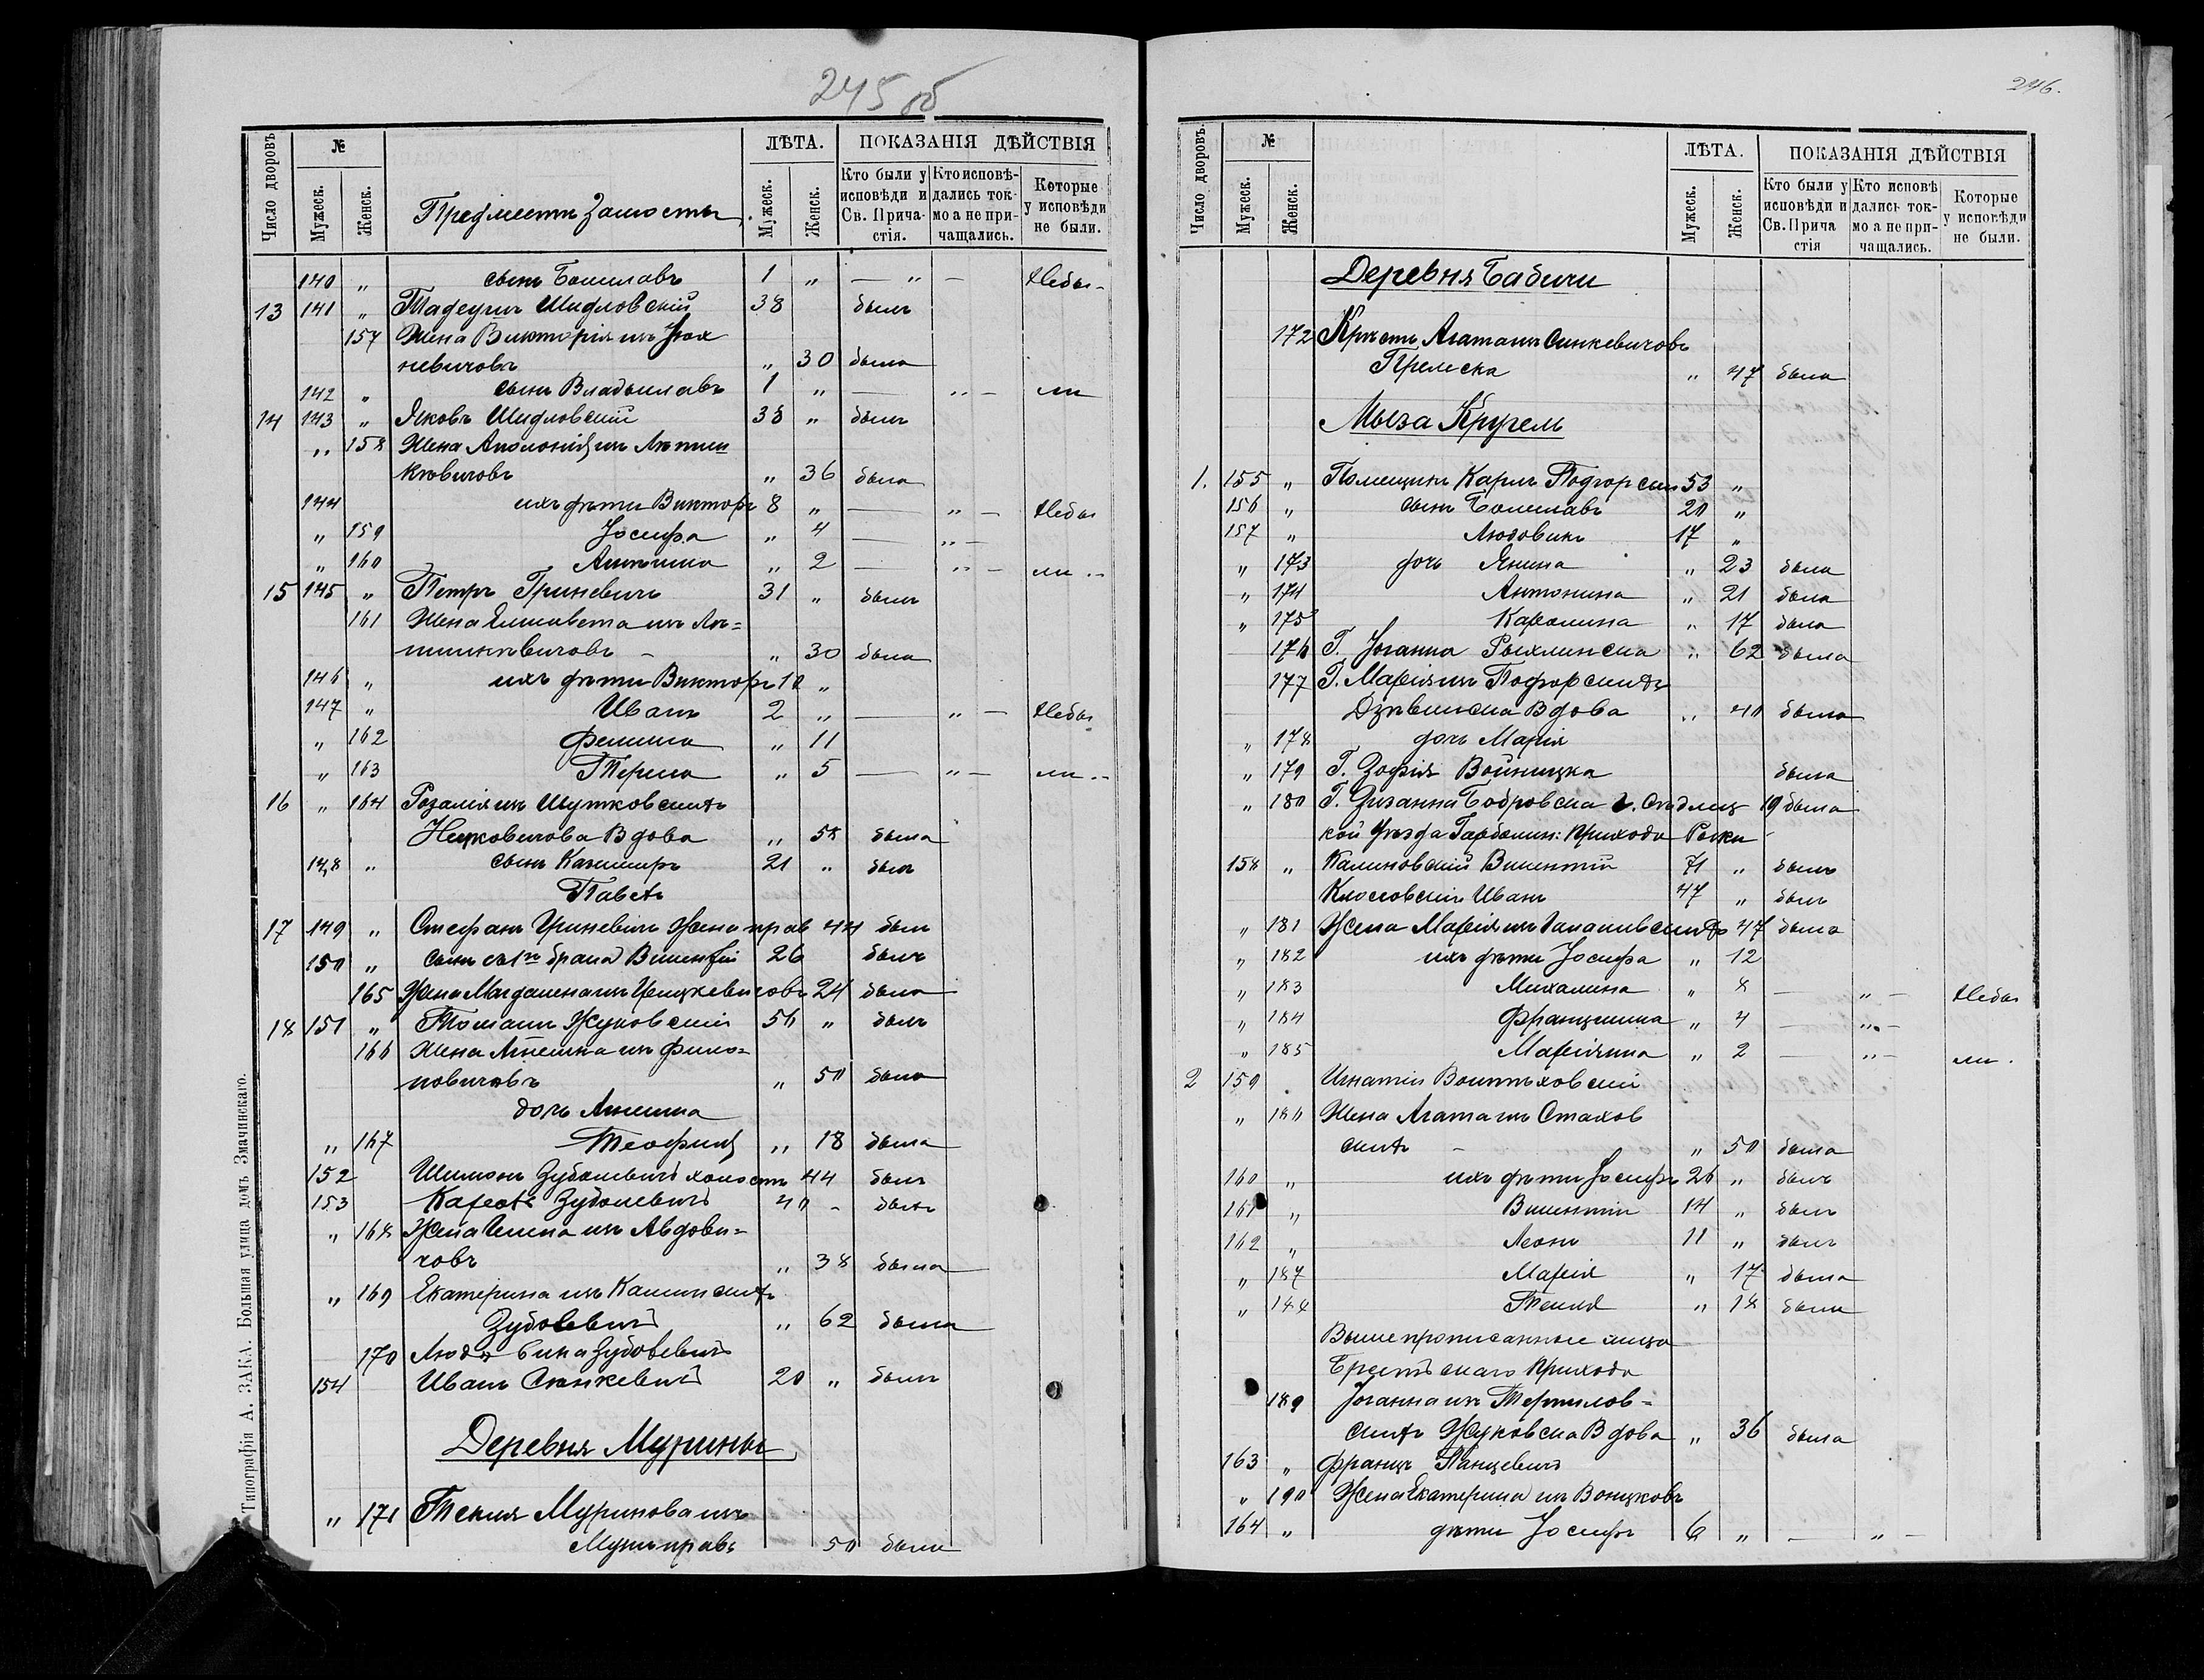 245 об
Число дворовъ
№
ЛѢТА.
ПОКАЗАНІЯ ДѢЙСТВІЯ
Мужеск.
Женск.
Предместе Замосты
Мужеск.
Женск.
Кто были у исповѣди и Св. Прича-стія.
Кто исповѣ-дались ток-мо а не при-чащались.
Которые у исповѣди не были.
140 „ сынъ Болеславъ 1 „ — „ — Небы-
13 141 „ Тадеушъ Шидловскій 38 былъ
157 Жена Викторія изъ Юх
невичовъ „ 30 была
142 „ сынъ Владыславъ 1 „ — „ — ли
14 143 „ Яковъ Шидловскій 38 „ былъ
„ 158 Жена Аполонія изъ
ковичовъ „ 36 была
144 ихъ дѣти Викторъ 8 „ — „ — Небы
„ 159 Іосифа „ 4 — „ —
„ 160 Антонина „ 2 — „ — ли „
15 145 „ Петръ Гриневичъ 31 „ былъ
161 Жена Елисавета изъ
„ 30 была
146 „ ихъ дѣти Викторъ 10 „
147 „ Иванъ 2 „ — „ — Небы
„ 162 Фелиція „ 11
„ 163 Тереса „ 5 — „ — ли „
16 „ 164 Розалія изъ Шутковскихъ
Ницковичова Вдова „ 58 была
148 „ сынъ Казимиръ 21 „ былъ
Павелъ
17 149 „ Стефанъ Гриневичъ Жена прав 44 был
150 „ сынъ съ 1го брака Викентій 26 былъ
165 Жена Магдалена изъ 24 была
18 151 „ Томашъ Жуковскій 50 „ былъ
166 Жена Агнешка изъ Фили=
повичовъ „ 50 была
дочь Анелина
„ 167 Теофиля „ 18 была
152 Шимонъ Зубалевичъ холостъ 44 былъ
153 Кароль Зубалевичъ 40 - былъ
„ 168 Жена Елена изъ Авдови=
човъ „ 38 была
„ 169 Екатерина изъ Калинскихъ
Зубалевичъ „ 62 была
170 Людвика Зубалевичъ
154 Иванъ Сенкевичъ 20 „ былъ
Деревня Мурины
„ 171 Текля Муринова изъ
Мужъ прав: 50 была
Типографія А. ЗАКА. Большая улица домъ Змачинскаго.
246.
Число дворовъ.
№
ЛѢТА.
ПОКАЗАНІЯ ДѢЙСТВІЯ
Мужеск.
Женск.
Мужеск.
Женск.
Кто были у исповѣди и Св. Прича стія
Кто исповѣ дались ток-мо а не при-чащались.
Которые у исповѣди не были.
Деревня Бабичи
172 Крест. Агата изъ Синкевичовъ
„ 47 была
Мыза Кругель
1. 155 „ Помещикъ Карлъ Подгорски 53 „
156 „ сынъ Болеславъ 20 „
157 „ Людовикъ 17 „
„ 173 дочь Янина „ 23 была
„ 174 Антонина „ 21 была
„ 175 Каролина „ 17 была
176 Г. Іоганна Рыхлинска „ 62 была
177 Г. Марія изъ Подгорскихъ
Вдова „ 40 была
„ 178 дочь Марія
„ 179 Г. Зофія Войницка была
„ 180 Г. Зузанна Бобровска г. Сѣдлец 19 была
кой Уѣзда Гарволин: Прихода Рыки
158 „ Калиновскій Викентій 71 „ былъ
Клосовскій Иванъ 47 „ былъ
„ 181 Жена Марія изъ 47 была
„ 182 ихъ дѣти Іосифа „ 12
„ 183 Михалина „ 8 — „ — Небы
„ 184 Францишка „ 4 — „ —
„ 185 Маріянна „ 2 — „ — ли.
2 159 Игнатій Войтѣховскій
„ 180 Жена Агата изъ Стахов
скихъ - „ 50 была
160 „ ихъ дѣти Іосифъ 26 „ былъ
161 „ Викентій 14 „ былъ
162 „ Леонъ 11 „ былъ
„ 187 Марія „ 17 была
„ 188 Текля „ 18 была
Вышепрописанные лица
Брестскаго Прихода
189 Іоганна изъ
скихъ Жуковска Вдова „ 36 была
163 „ Францъ Панцевичъ
„ 190 Жена Екатерина изъ
164 „ дѣти Іосифъ 6 „ — „ —